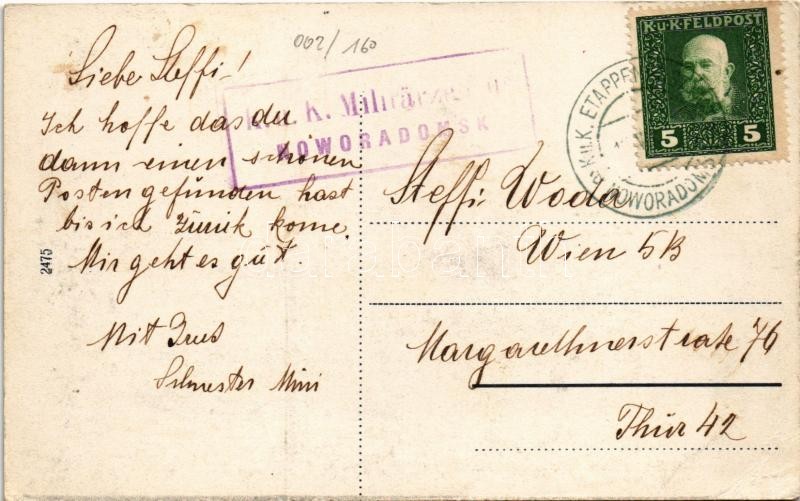 002/160
Liebe Steffi!
Ich hoffe das du
dann einen schönen
Posten gefunden hast
bis ich Zurük kome.
Mir geht es gut.
Mit Grus
Schwester Mini
K. u. K. Militärzensur
NOWORADOMSK
K.u.K. FELDPOST
5 5
K.u.K. ETAPPEN
NOWORADOMSK
Steffi Woda
Wien 5B
Margarethnerstrate 76
Thür 42
2475